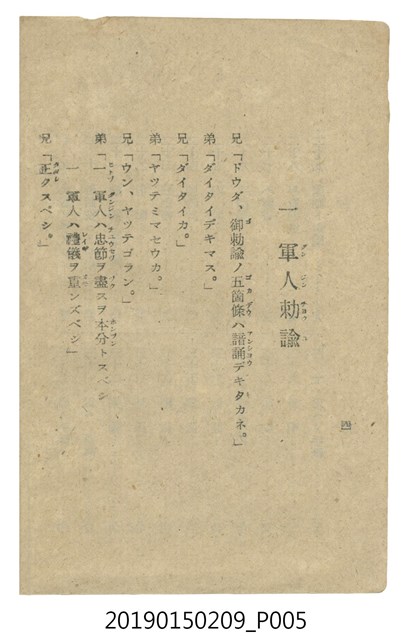 四
一 軍人勅諭
兄「ドウダ、御勅諭ノ五箇條ハ諳誦デキタカネ。」
弟「ダイタイデキマス。」
兄「ダイタイカ。」
弟「ヤツテミマセウカ。」
兄「ウン、ヤツテゴラン。」
弟「一 軍人ハ忠節ヲ盡スヲ本分トスベシ
一 軍人ハ禮儀ヲ重ンズベシ」
兄「正クスベシ。」
20190150209_P005